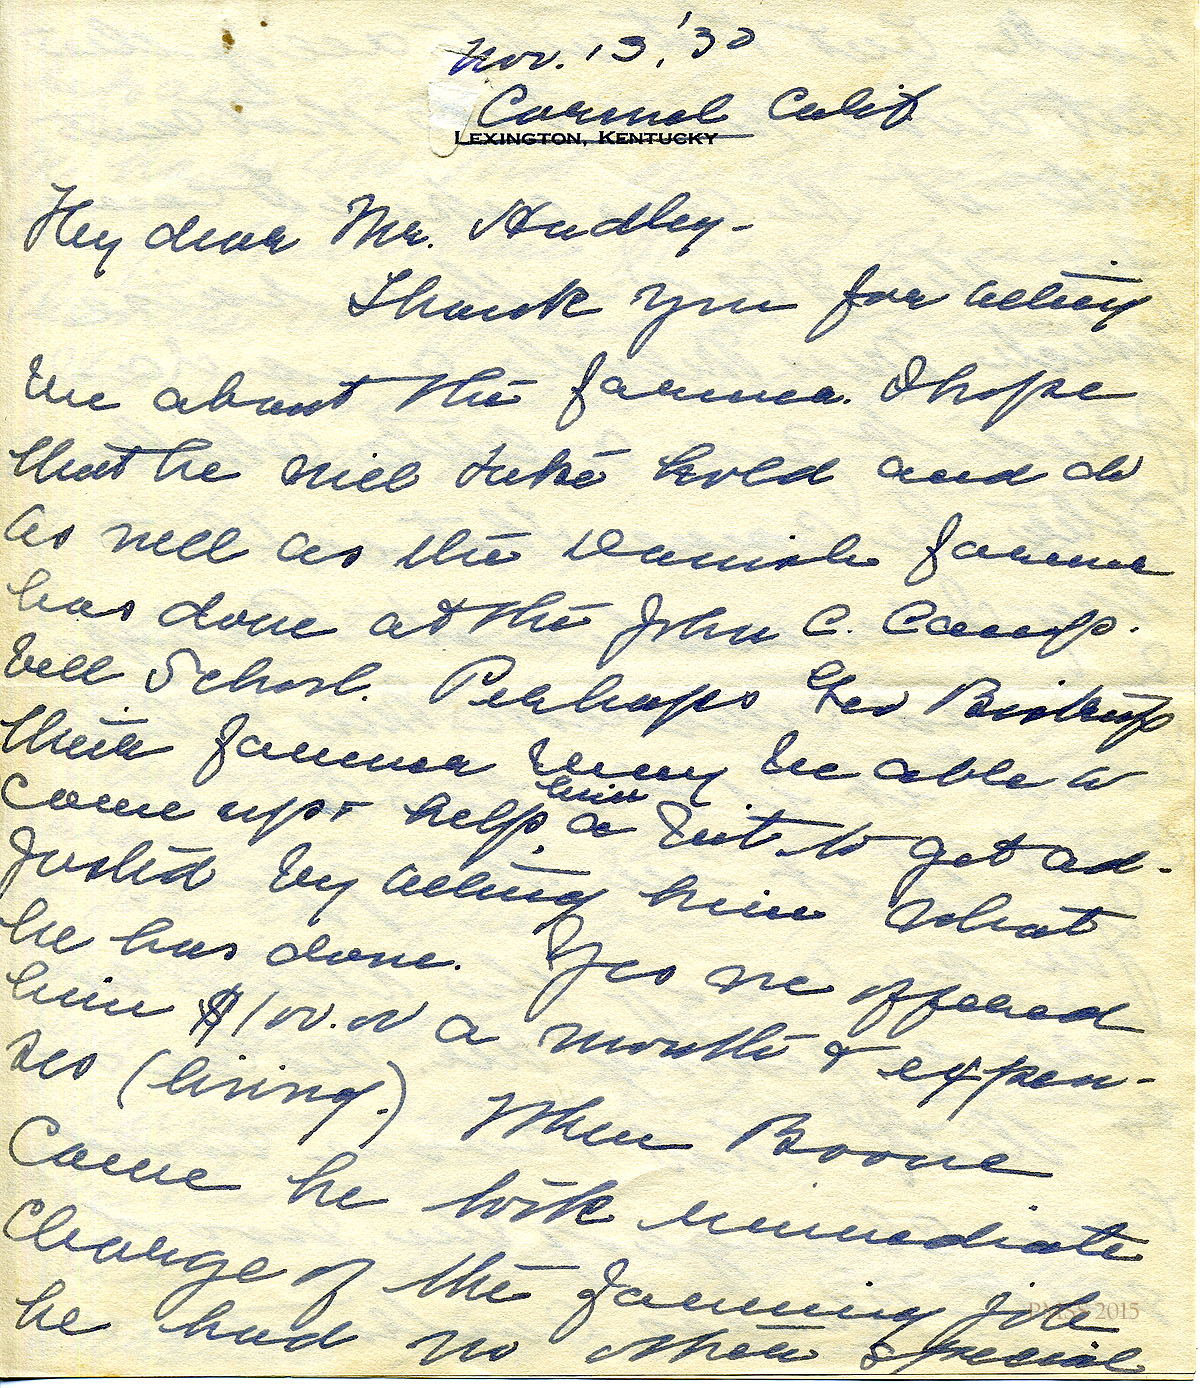 Nov. 13, '30
Carmel Calif
LEXINGTON, KENTUCKY
My dear Mr. Hadley-
Thank you for telling
me about the farmer. I hope
that he will take hold and do
as well as the Danish farmer
has done at the John C. Camp-
bell School. Perhaps Geo Bidstrup
their farmer may be able to
come up & help him a bit to get ad-
justed by telling him what
he has done. Yes we offered
him $100.00 a month & expen-
ses (living.) When Boone
came he took immediate
charge of the farming job
he had no other special
PMSS 2015